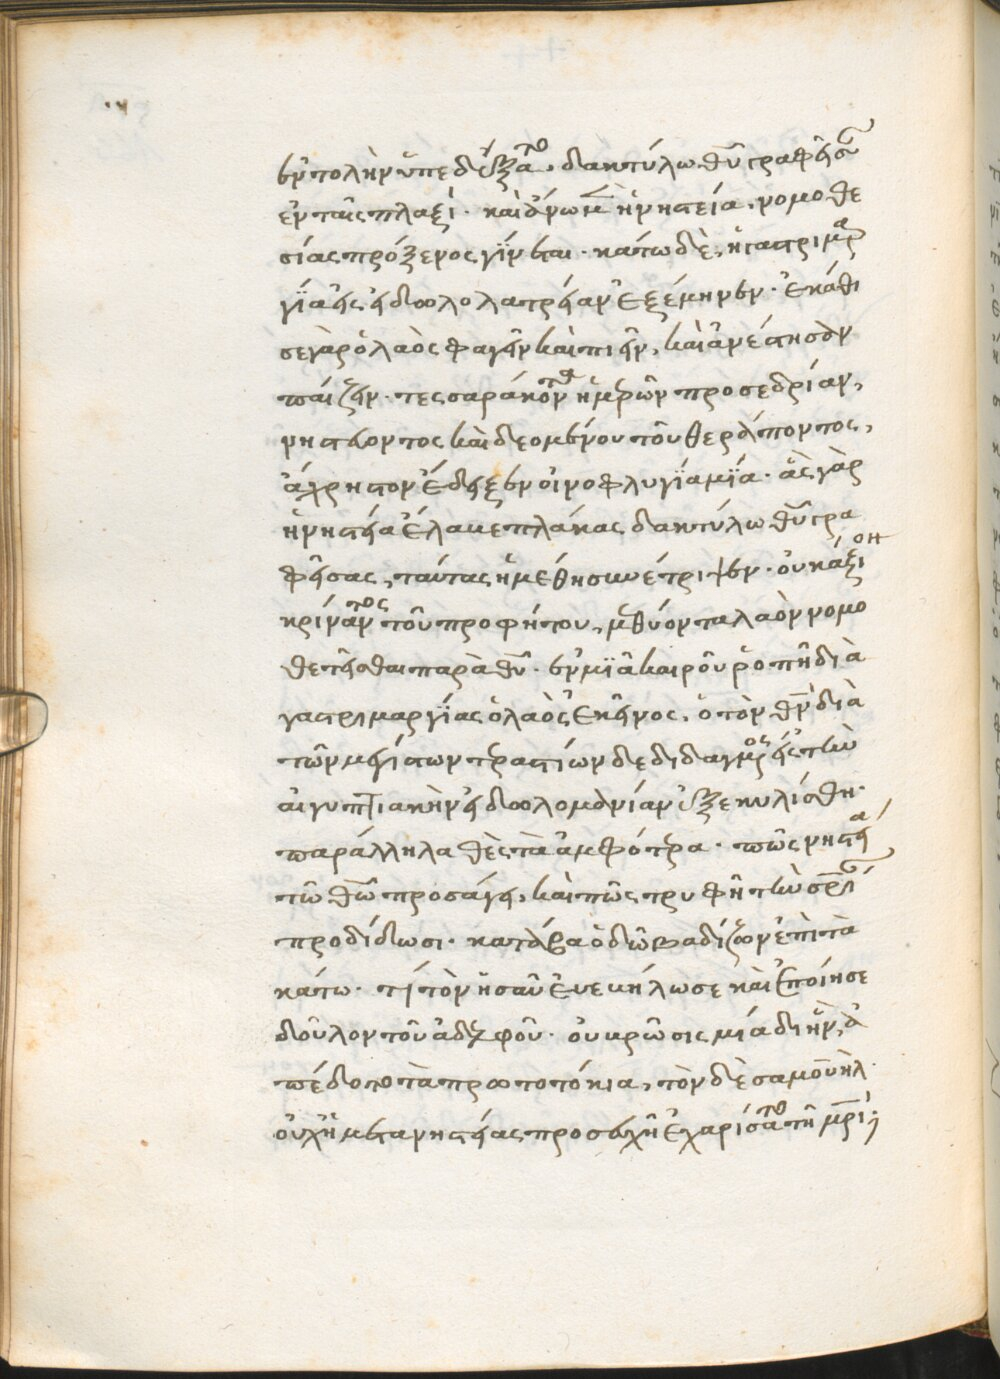 ἐντολὴν ὑπεδέξατο, δακτύλω θῦ γραφεῖσαν
ἐν ταῖς πλαξί· καὶ ἄνω μὲν ἡ νηστεία, νομοθε
σίας πρόξενος γίνεται· κάτω δὲ, ἡ γαστριμαρ
γία εἰς εἰδωλολατρείαν ἐξέμηνεν· ἐκάθι
σε γὰρ ὁ λαὸς φαγεῖν καὶ πιεῖν, καὶ ἀνέστησαν
παίζειν· τεσσαράκοντα ἡμερῶν προσεδρίαν,
νηστεύοντος καὶ δεομένου τοῦ θεράποντος,
ἄχρηστον ἔδειξεν οἰνοφλυγία μία· ἃς γὰρ
ἡ νηστεία ἔλαβε πλάκας δακτύλω θῦ γρα
φείσας, ταύτας ἡ μέθη συνέτριψεν· οὐκ ἄξιον
κρίναντος τοῦ προφήτου, μεθύοντα λαὸν νομο
θετεῖσθαι παρὰ θῦ· ἐν μιᾶ καιροῦ ῥοπῆ διὰ
γαστριμαργίας ὁ λαὸς ἐκεῖνος, ὁ τὸν θν διὰ
τῶν μεγίστων τεραστίων δεδιδαγμένος εἰς τὴν
αἰγυπτιακὴν εἰδωλομανίαν ἐξεκυλίσθη·
παράλληλα θὲς τὰ ἀμφότερα· πῶς νηστεία
τῶ θῶ προσάγει, καὶ πῶς τρυφὴ τὴν σρίαν
προδίδωσι· κατάβα ὁδῶ βαδίζων ἐπὶ τὰ
κάτω· τί τὸν ἡσαῦ ἐβεβήλωσε καὶ ἐποίησε
δοῦλον τοῦ ἀδελφοῦ· οὐ βρῶσις μία δι' ἣν, ἀ
πέδοτο τὰ πρωτοτόκια, τὸν δὲ σαμουὴλ
οὐχ ἡ μετα νηστείας προσευχὴ ἐχαρίσατο τῆ μρί;